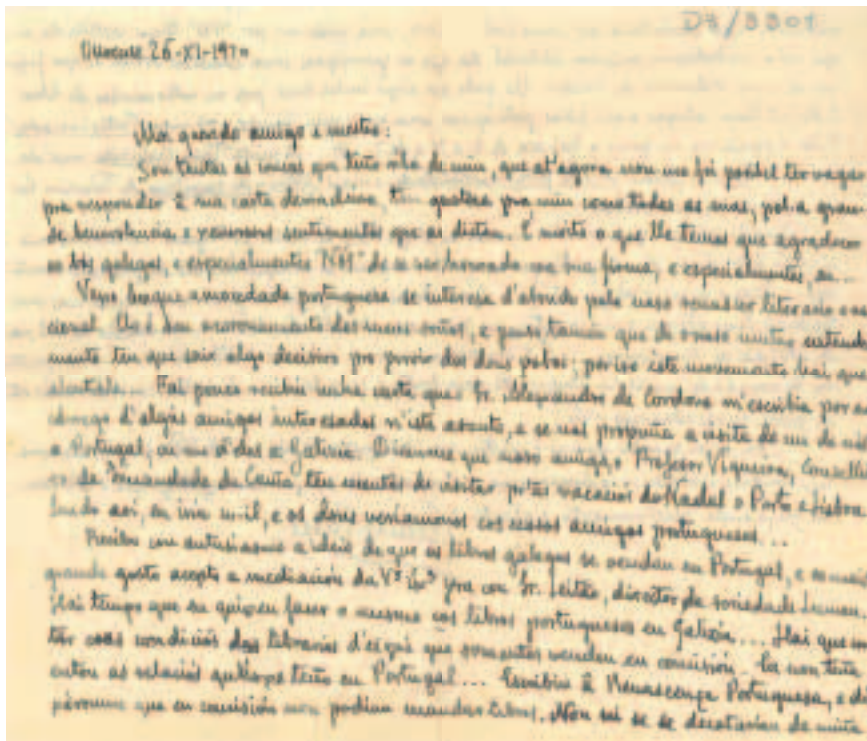 D4/3301
Ourense 26-XI-1920
Moi querido amigo e mestre:
Son tantas as cousas que teño de min, que at'agora non me foi posibel ter vagar
pra responder â sua carta derradeira, tan gostosa pra min como todas as suas, pol-a gran-
de benevolencia e xenerosos sentimentos que as dictan. É moito o que lle temos que agradecer
os bós galegos, e especialmentes "Nós" de se ver honrado coa sua firma, e especialmentes, eu...
Vexo que a mocedade portuguesa se interesa d'abondo pelo noso literario
cional. Iso é o dos meus soños, e penso tamén que do noso mutuo entendi-
mento ten que sair algo decisivo pro porvir dos dous pobos; por iso iste movemento hai que
Fai pouco recibin unha carta que o Sr. Alexandre de Cordova m'escribia por
d'algús amigos interesados n'iste asunto, e se nos propuña a visita de un de nos
a Portugal, ou un d'eles a Galicia. Dicenme que noso amigo o Profesor Viqueira, Conselle-
ro da Irmandade da Cruña ten mentes de visitar pol-as vacaciós do Nadal o Porto e Lisboa
Sendo asi, eu iria con il, e os dous veriamonos cos nosos amigos portugueses...
Recibo con entusiasmo a ideia de que os libros galegos se vendan en Portugal, e con moi
grande gosto acepto a mediación da Vª Exª pra con Sr. Leitão, director da sociedade Lumen.
Hai tempo que eu quixen facer o mesmo cos libros portugueses en Galizia... Hai que con-
tar coas condiciós das librarias d'eiqui que somentes venden en comisión. Eu non tiña
entón as relaciós que hoxe teño en Portugal... Escribin â Renascença Portuguesa, e
péronme que en comisión non podian mandar libros. Non sei se se decatarian da miña